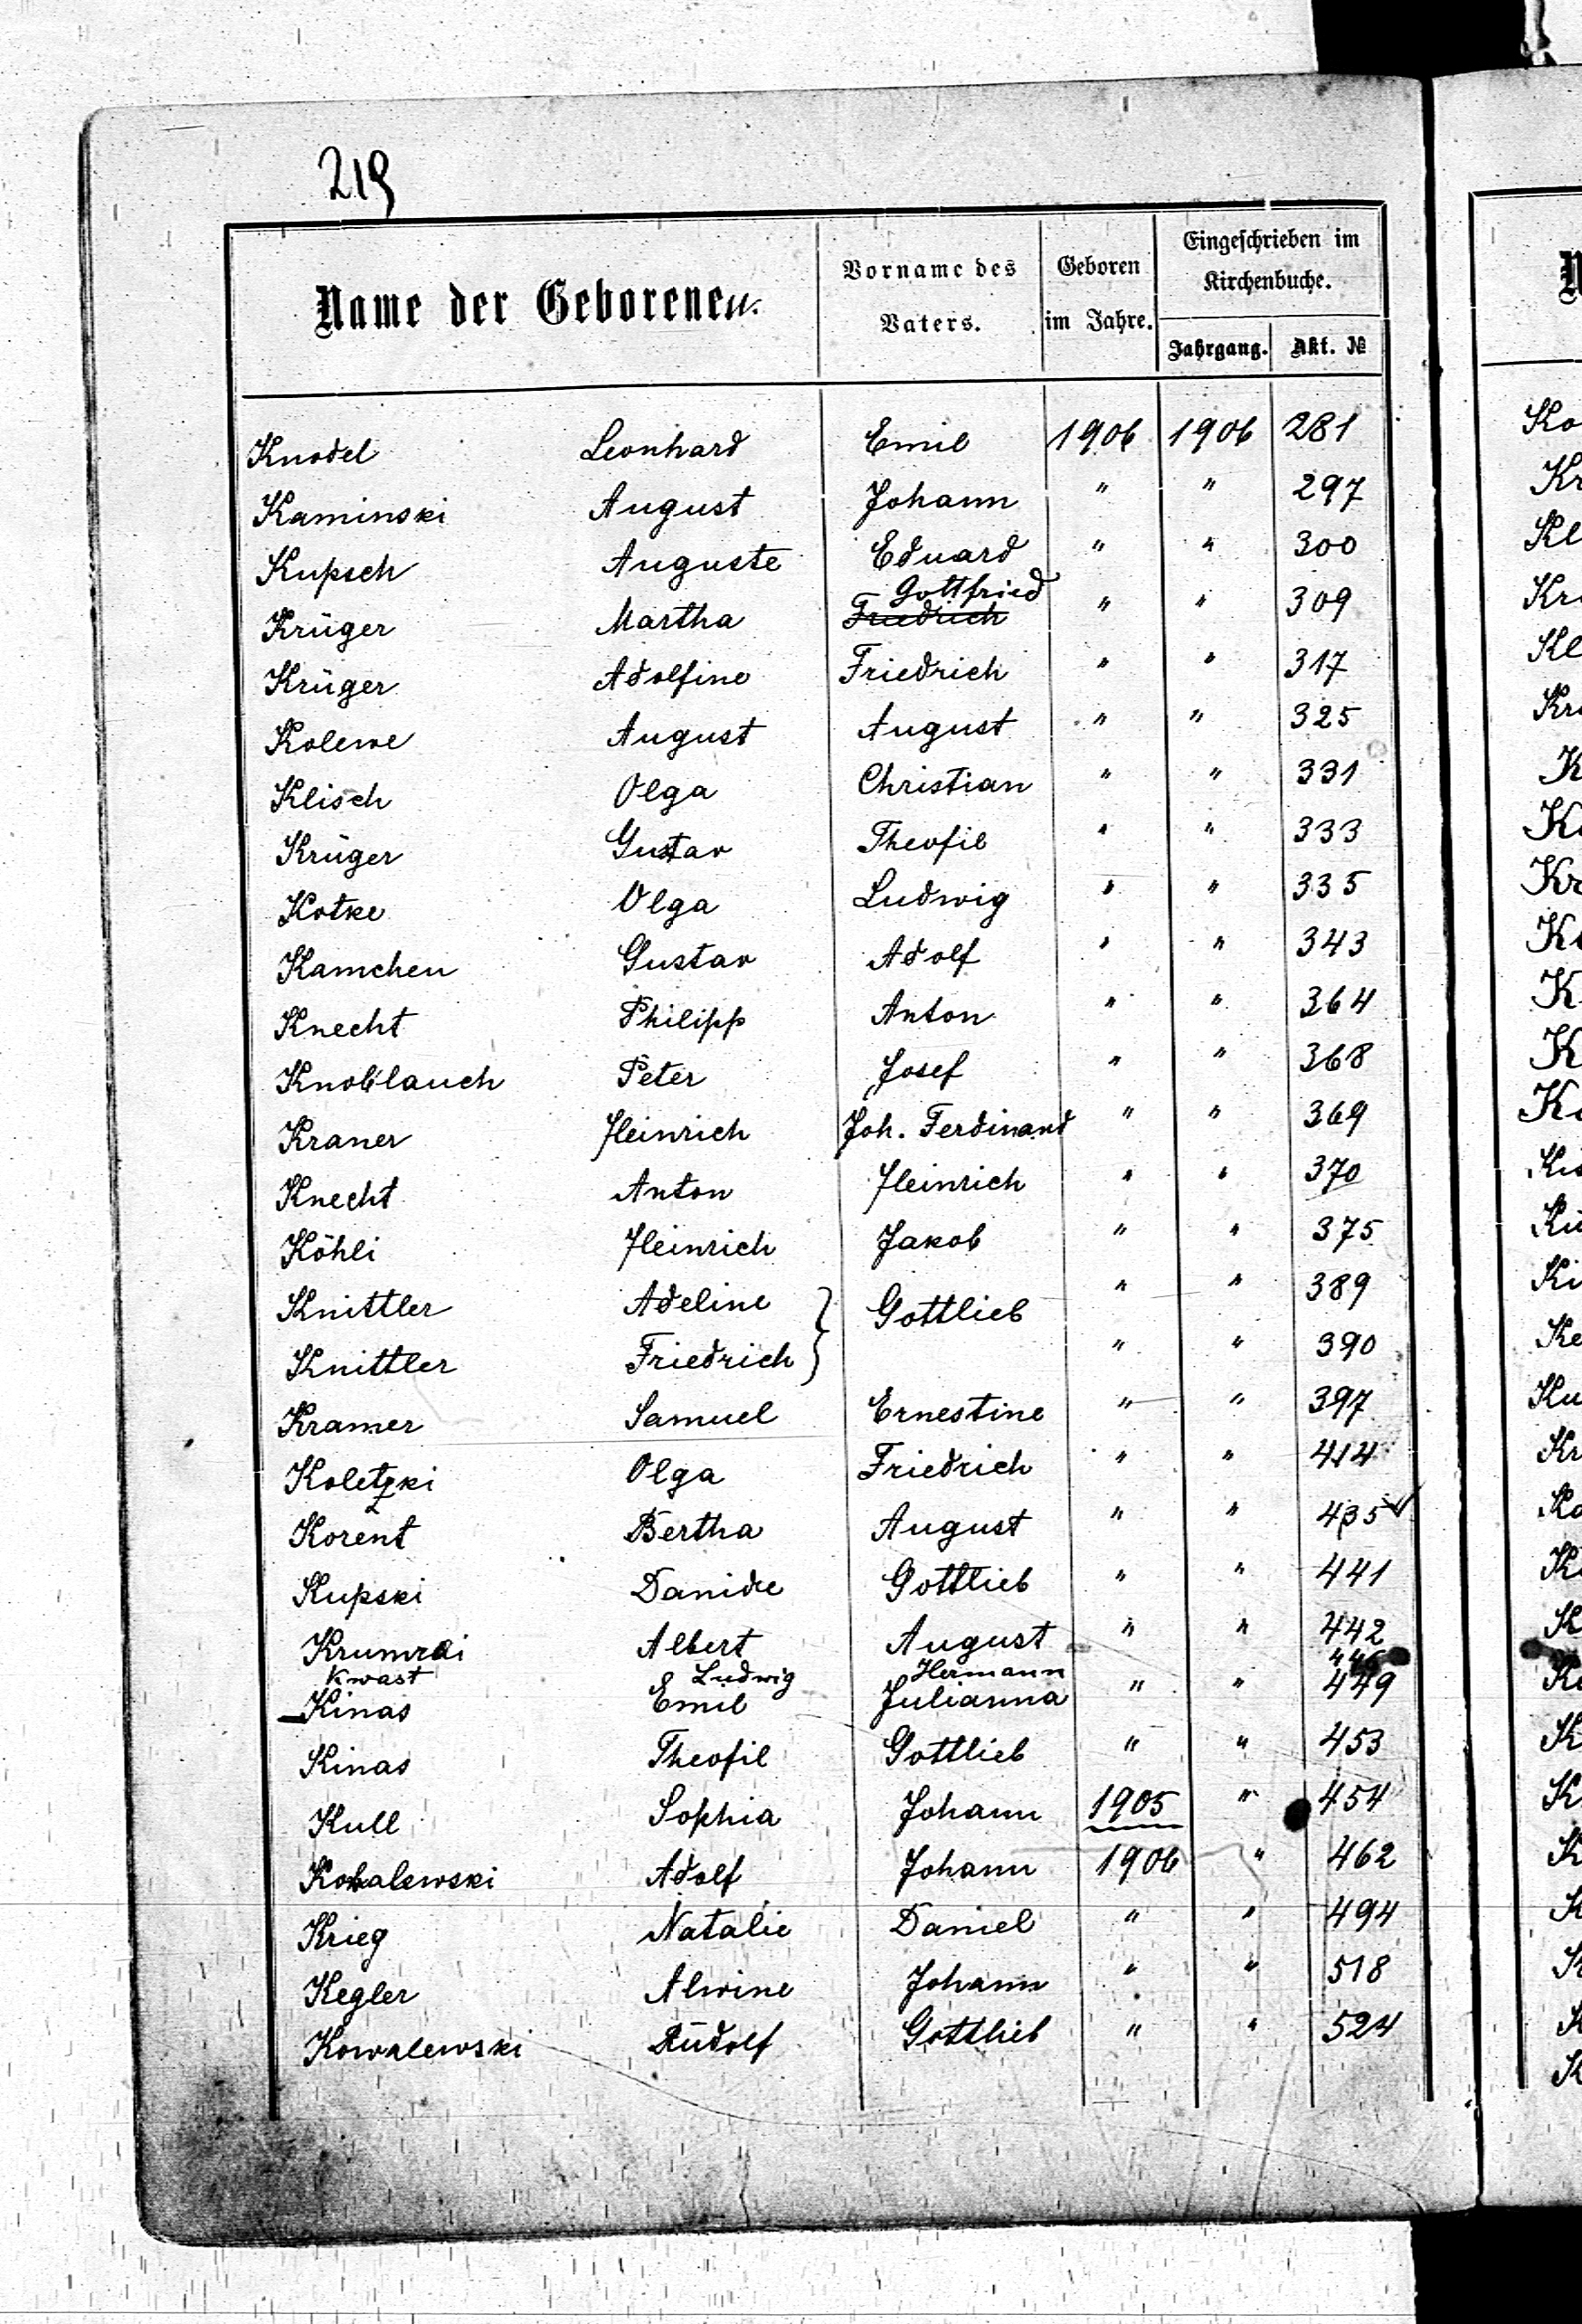 219
Name der Geborenen. Vorname des Vaters. Geboren im Jahre. Eingeschrieben im Kirchenbuche.
Jahrgang. Akt. №
Knodel Leonhard Emil 1906 1906 281
Kaminski August Johann " " 297
Kupsch Auguste Eduard " " 300
Gottfried
Krüger Martha Friedrich " " 309
Krüger Adolfine Friedrich " " 317
Kolewe August August " " 325
Klisch Olga Christian " " 331
Krüger Gustav Theofil " " 333
Kotke Olga Ludwig " " 335
Kamchen Gustav Adolf " " 343
Knecht Philipp Anton " " 364
Knoblauch Peter Josef " " 368
Kraner Heinrich Joh. Ferdinand " " 369
Knecht Anton Heinrich " " 370
Köhli Heinrich Jakob " " 375
Knittler Adeline } Gottlieb " " 389
Knittler Friedrich } " " 390
Kramer Samuel Ernestine " " 397
Koletzki Olga Friedrich " " 414
Korent Bertha August " " 435
Kupski Gottlieb " " 441
Krumrei Albert August " " 442
Kwast Ludwig Hermann 446
Kinas Emil Julianna " " 449
Kinas Theofil Gottlieb " " 453
Kull Sophia Johann 1905 " 454
Kowalewski Adolf Johann 1906 " 462
Krieg Natalie Daniel " " 494
Kegler Alwine Johann " " 518
Kowalewski Rudolf Gottlieb " " 524
Ko
Kr
Kl
Kr
Kl
Kr
K
K
Kr
K
K
K
K
Ki
K
Ki
Ke
Ku
Kr
Ko
K
K
K
K
K
K
K
K
K
K